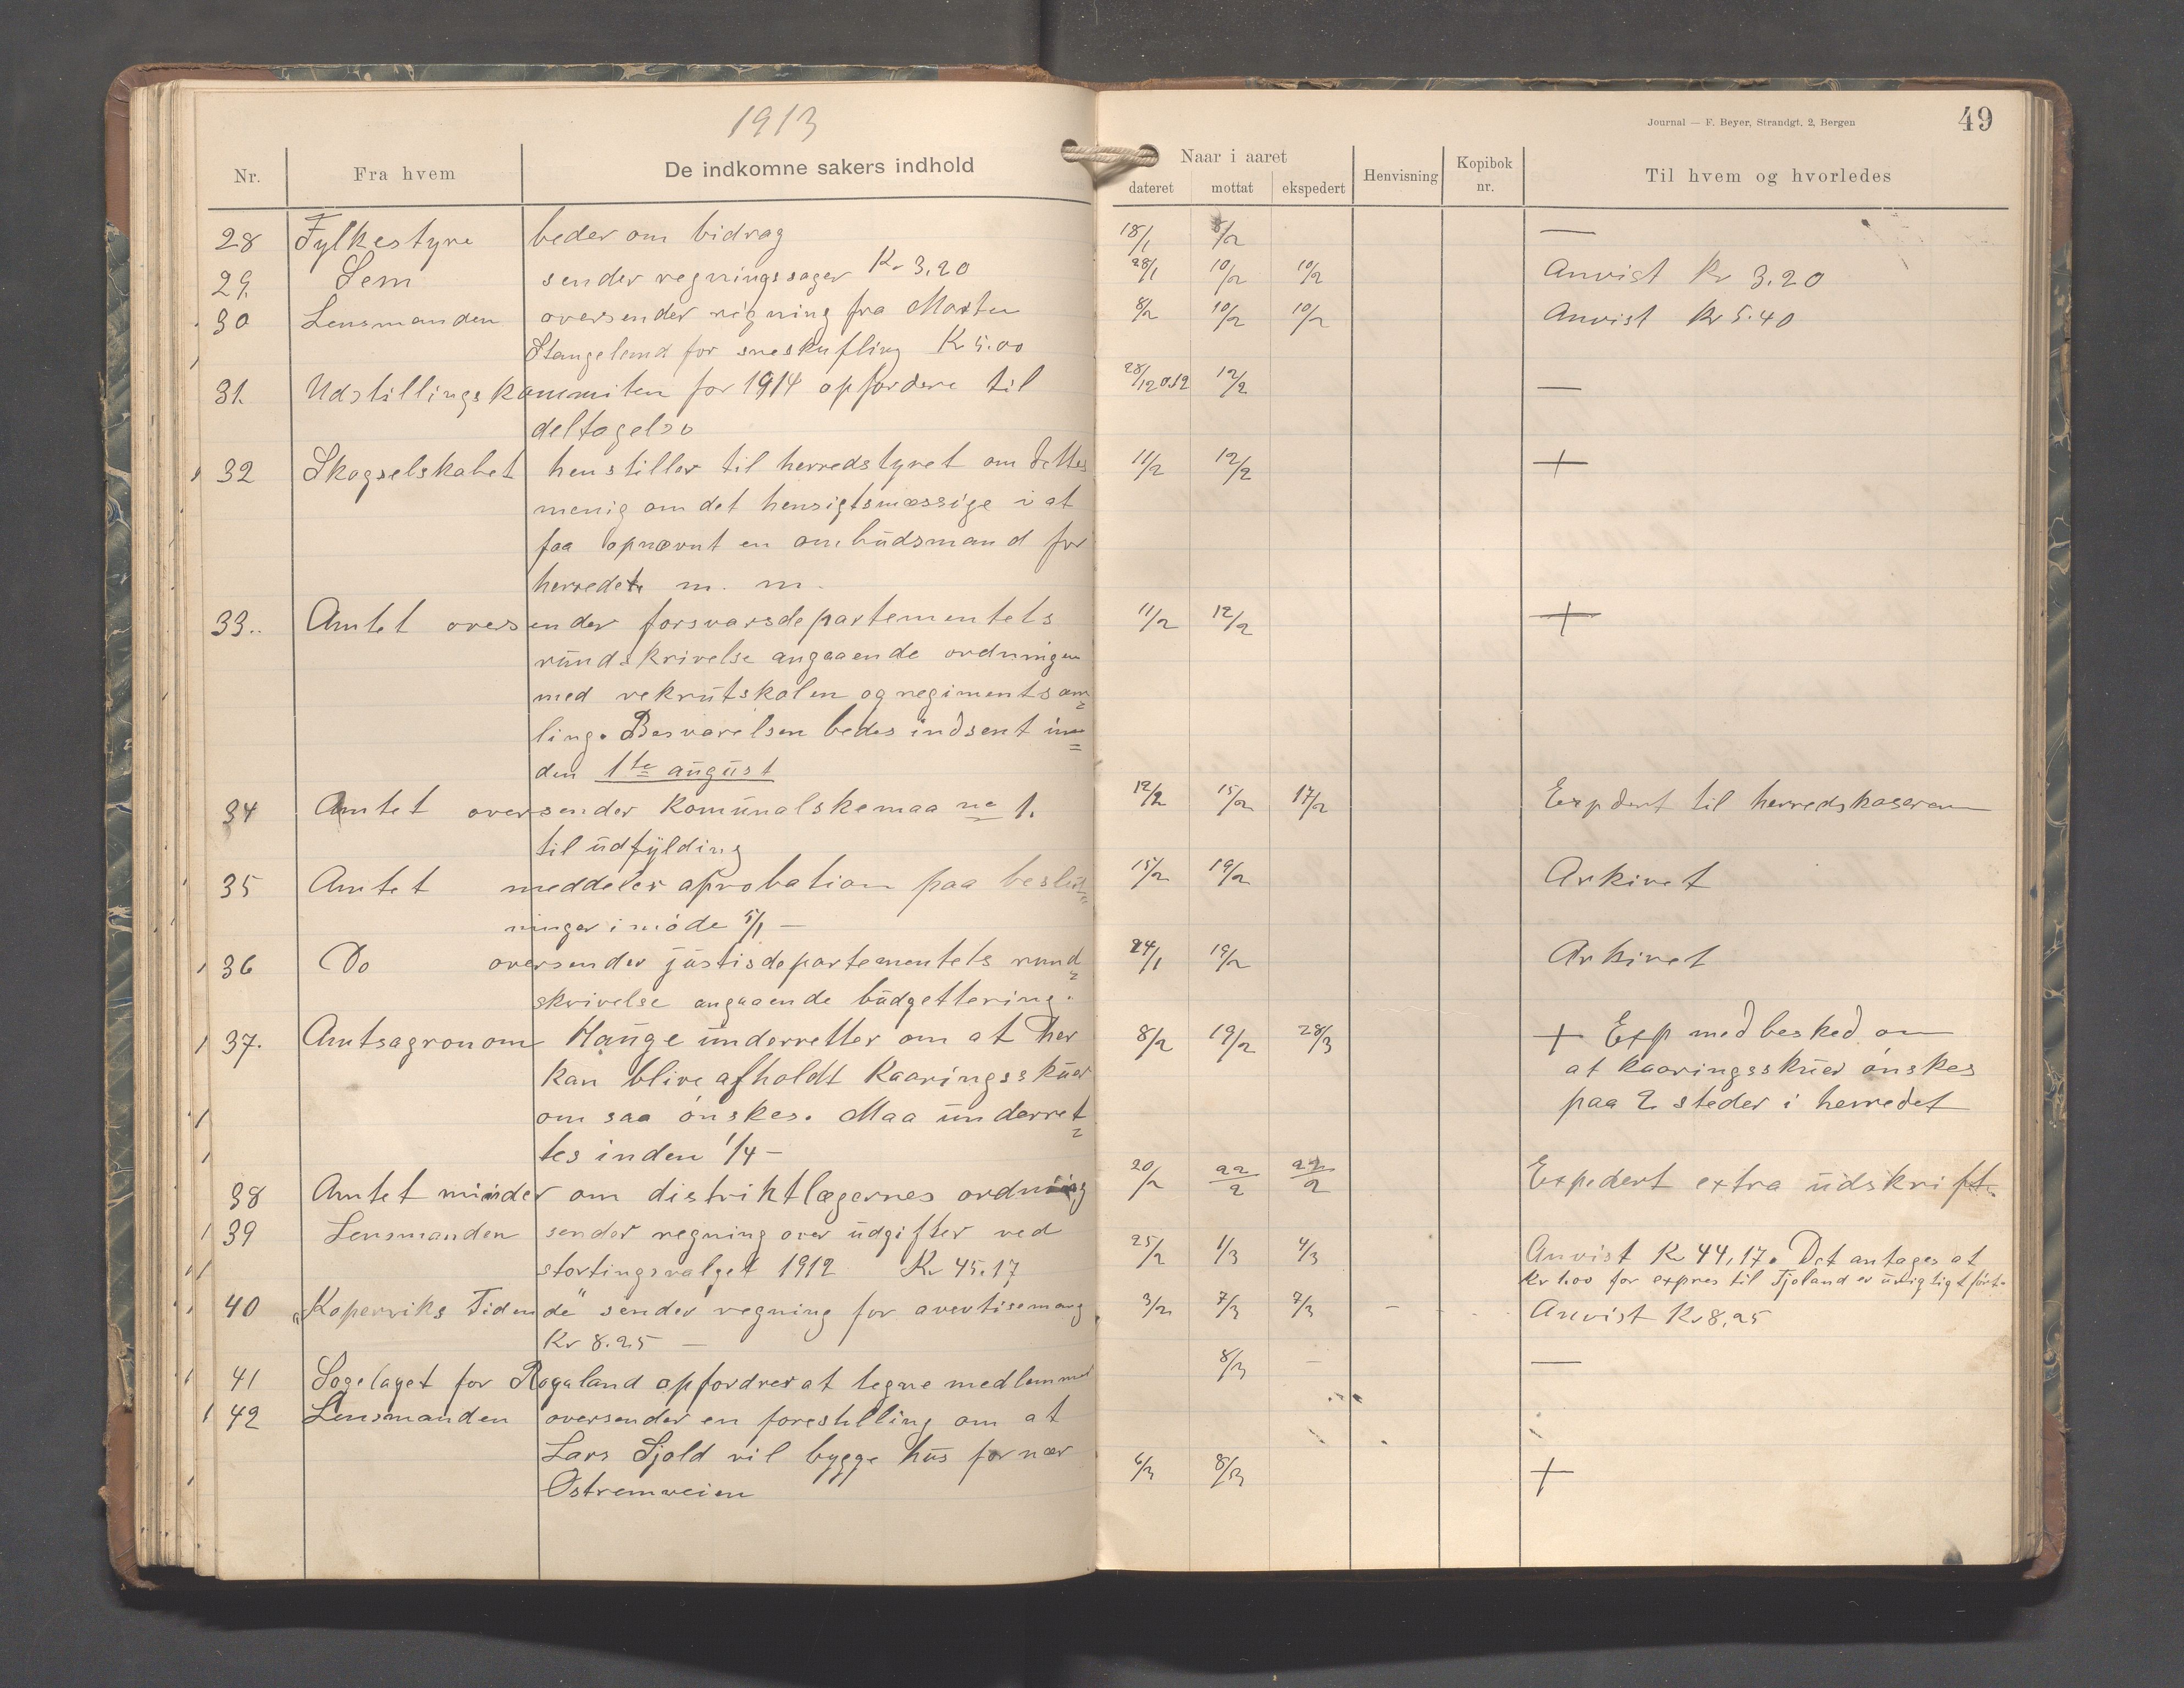 1913
Journal — F. Beyer, Strandgt. 2, Bergen
49
Nr. Fra hvem De indkomne sakers indhold Naar i aaret dateret mottat ekspedert Henvisning Kopibok nr. Til hvem og hvorledes
28 Fylkestyre beder om bidrag 18/1 8/2 —
29. Sem sender regningssager Kr 3.20 28/1 10/2 10/2 Anvist Kr 3.20
30 Lensmanden oversender regning fra Morten 8/2 10/2 10/2 Anvist Kr 5.40
Stangeland for sneskufling Kr 5.00
31. Udstillingskommiten for 1914 opfordere til 28/12 1912 12/2 —
deltagelse
32 Skogselskabet henstiller til herredstyret om dettes 11/2 12/2 +
menig om det hensigtsmæssige i at
faa opnævnt en ombudsmand for
herredet m. m.
33.. Amtet oversender forsvarsdepartementets 11/2 12/2 +
rundskrivelse angaaende ordningen
med rekrutskolen og regimentsam=
ling. Besvarelsen bedes indsent in=
den 1te august
34 Amtet oversender komunalskemaa no 1. 12/2 15/2 17/2 Expdert til herredskaseren
til udfylding
35 Amtet meddeler aprobation paa beslut= 15/2 19/2 Arkivet
ninger i møde 5/1 —
36 Do oversender justisdepartementets rund= 24/1 19/2 Arkivet
skrivelse angaaende budgettering.
37. Amtsagronom Hauge underretter om at her 8/2 19/2 28/3 + Exp med besked om
kan blive afholdt kaaringsskuer at kaaringsskuer ønskes
om saa ønskes. Maa underret= paa 2 steder i herredet
tes inden 1/4 —
38 Amtet minder om distriktlægernes ordning 20/2 22/2 22/2 Expedert extra udskrift.
39 Lensmanden sender regning over udgifter ved 25/2 1/3 4/3 Anvist Kr 44,17. Det antages at
stortingsvalget 1912 Kr 45.17 Kr 1.00 for expres til Tjoland er urigtigt ført.
40 „Kopervriks Tidende" sender regning for avertisemang 3/2 7/3 7/3 - - Anvist Kr 8,25
Kr 8.25 —
41 Sogelaget for Rogaland opfordrer at tegne medlemmer 8/3 — —
42 Lensmanden oversender en forestilling om at
Lars Sjold vil bygge hus for nær 6/3 8/3 +
Østremveien